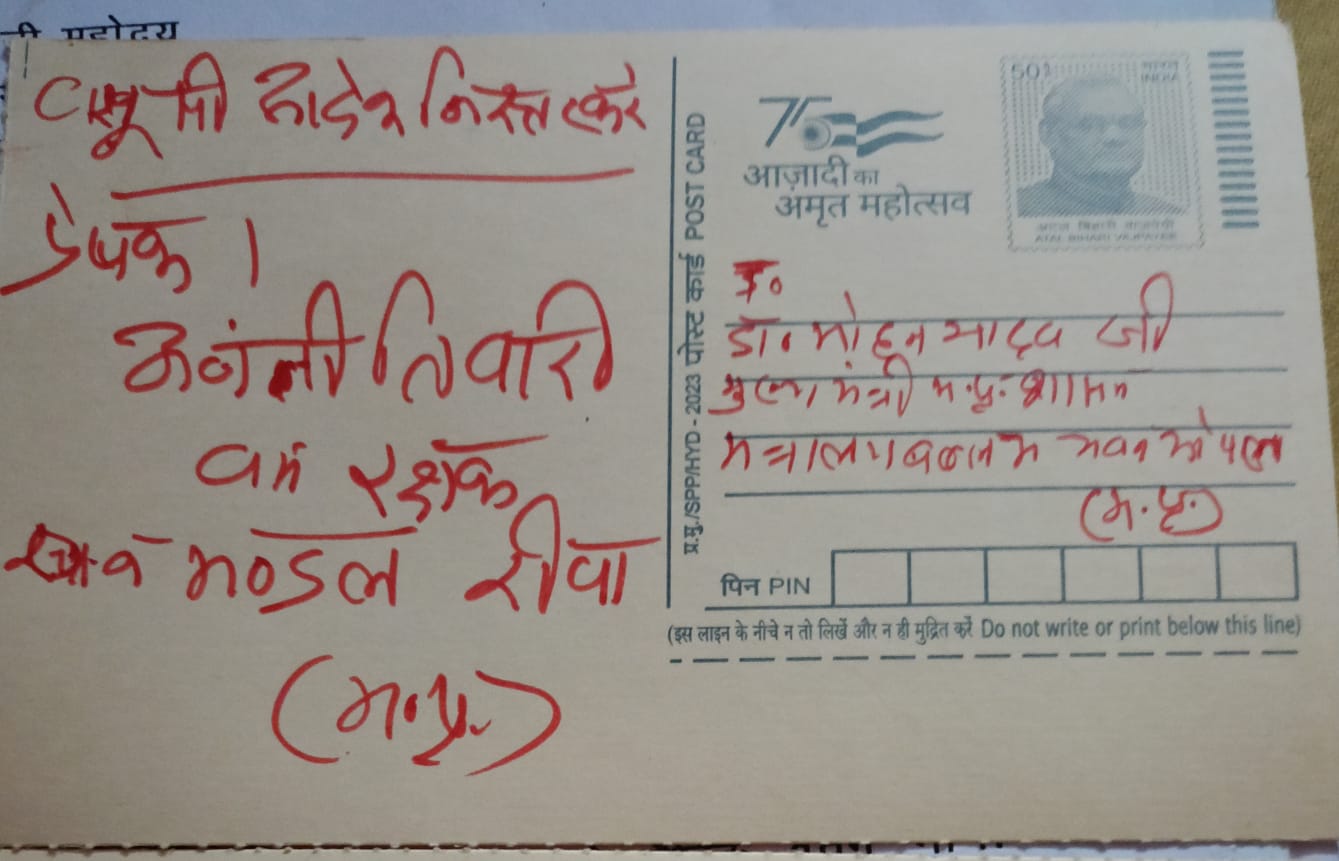 महोदय
वसूली आदेश निरस्त करे
प्रेषक ।
अंजली तिवारी
वन रक्षक
वन मण्डल रीवा
(म.प्र.)
प्र.मु./SPP/HYD - 2023 पोस्ट कार्ड POST CARD
75
आज़ादी का
अमृत महोत्सव
50
भारत
INDIA
अटल बिहारी वाजपेयी
ATAL BIHARI VAJPAYEE
डॉ. मोहन यादव जी
मुख्य मंत्री म.प्र. शासन
मंत्रालय वल्लभ भवन भोपाल
(म.प्र.)
पिन PIN
(इस लाइन के नीचे न तो लिखें और न ही मुद्रित करें Do not write or print below this line)